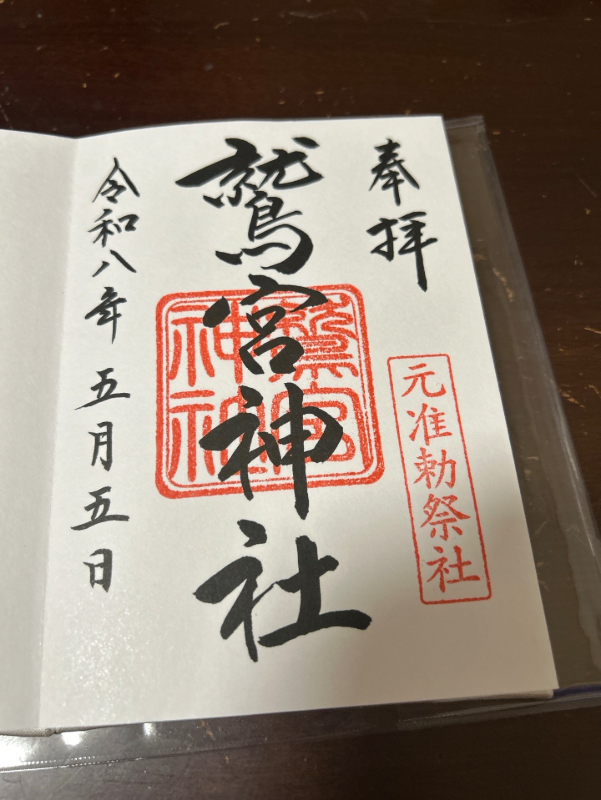 奉拝
元准勅祭社
鷲宮神社
鷲宮神社
令和八年五月五日